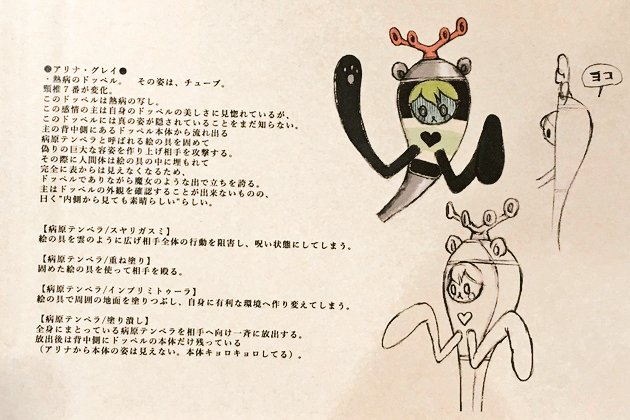 ●アリナ・グレイ●
・熱病のドッペル。　その姿は、チューブ。
頸椎7番が変化。
このドッペルは熱病の写し。
この感情の主は自身のドッペルの美しさに見惚れているが、
このドッペルには真の姿が隠されていることをまだ知らない。
主の背中側にあるドッペル本体から流れ出る
病原テンペラと呼ばれる絵の具を固めて
偽りの巨大な容姿を作り上げ相手を攻撃する。
その際に人間体は絵の具の中に埋もれて
完全に表からは見えなくなるため、
ドッペルでありながら魔女のような出で立ちを誇る。
主はドッペルの外観を確認することが出来ないものの、
曰く"内側から見ても素晴らしい"らしい。
【病原テンペラ/スヤリガスミ】
絵の具を雲のように広げ相手全体の行動を阻害し、呪い状態にしてしまう。
【病原テンペラ/重ね塗り】
固めた絵の具を使って相手を殴る。
【病原テンペラ/インプリミトゥーラ】
絵の具で周囲の地面を塗りつぶし、自身に有利な環境へ作り変えてしまう。
【病原テンペラ/塗り潰し】
全身にまとっている病原テンペラを相手へ向け一斉に放出する。
放出後は背中側にドッペルの本体だけ残っている
（アリナから本体の姿は見えない。本体キョロキョロしてる）。
ヨコ